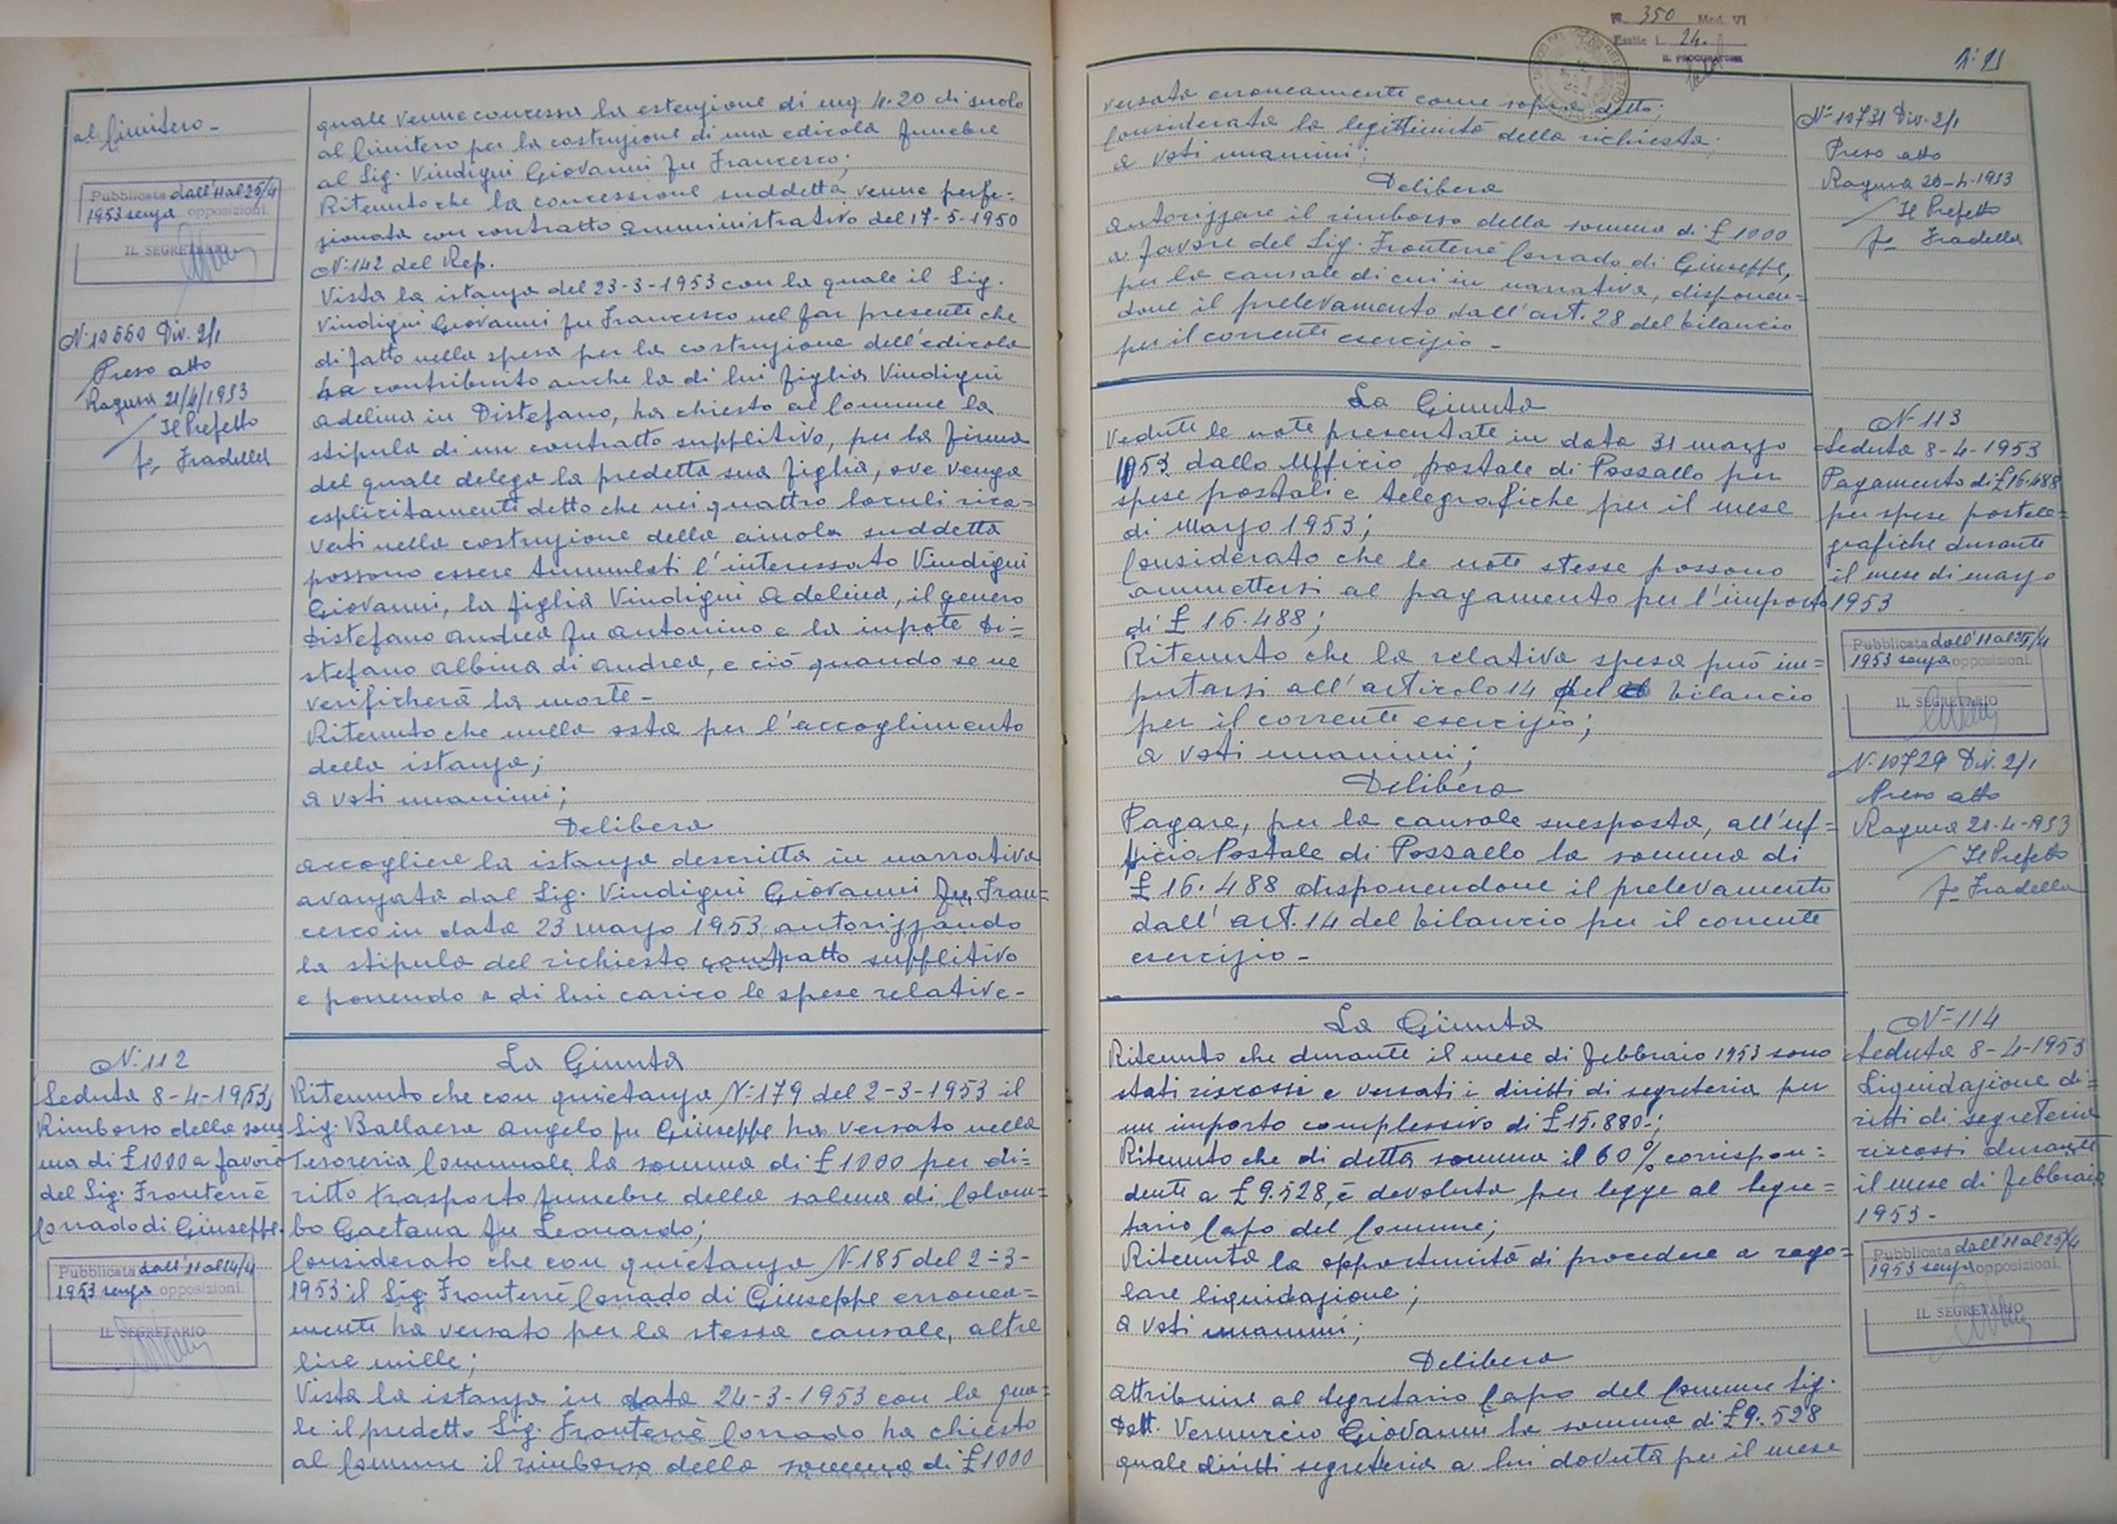 al Cimitero -
Pubblicata dall'11 al 25/4
1953 senza opposizioni.
IL SEGRETARIO
N. 10660 Div. 2/1
Preso atto
Ragusa 21/4/1953
Il Prefetto
fo Fradella
quale venne concessa la estenzione di mq 4.20 di suolo
al Cimitero per la costruzione di una edicola funebre
al Sig. Vindigni Giovanni fu Francesco;
Ritenuto che la concessione suddetta venne perfe=
zionata con contratto amministrativo del 17-5-1950
N. 142 del Rep.
Vista la istanza del 23-3-1953 con la quale il Sig.
Vindigni Giovanni fu Francesco nel far presente che
di fatto nella spesa per la costruzione dell'edicola
ha contribuito anche la di lui figlia Vindigni
Adelina in Distefano, ha chiesto al Comune la
stipula di un contratto supplitivo, per la firma
del quale delega la predetta sua figlia, ove venga
esplicitamente detto che nei quattro loculi rica=
vati nella costruzione della aiuola suddetta
possono essere tumulati l'interessato Vindigni
Giovanni, la figlia Vindigni Adelina, il genero
Distefano Andrea fu Antonino e la inpote Di=
stefano Albina di Andrea, e ciò quando se ne
verificherà la morte -
Ritenuto che nulla osta per l'accoglimento
della istanza;
a voti unanimi;
Delibera
accogliere la istanza descritta in narrativa
avanzata dal Sig. Vindigni Giovanni fu Fran=
cesco in data 23 marzo 1953 autorizzando
la stipula del richiesto contratto supplitivo
e ponendo a di lui carico le spese relative -
N. 112
Seduta 8-4-1953
Rimborso della som
ma di £ 1000 a favore
del Sig. Fronterrè
Corrado di Giuseppe.
Pubblicata dall'11 al 24/4
1953 senza opposizioni.
IL SEGRETARIO
La Giunta
Ritenuto che con quietanza N. 179 del 2-3-1953 il
Sig. Ballaera Angelo fu Giuseppe ha versato nella
Tesoreria Comunale la somma di £ 1000 per di=
ritto trasporto funebre della salma di Colom=
bo Gaetana fu Leonardo;
Considerato che con quietanza N. 185 del 2-3-
1953 il Sig. Fronterrè Corrado di Giuseppe erronea=
mente ha versato per la stessa causale, altre
lire mille;
Vista la istanza in data 24-3-1953 con la qua=
le il predetto Sig. Fronterrè Corrado ha chiesto
al Comune il rimborso della somma di £ 1000
N. 350 Mod. VI
Esatte L. 24.
IL PROCURATORE
versata erroneamente come sopra detto;
Considerata la legittimità della richiesta;
a voti unanimi;
Delibera
autorizzare il rimborso della somma di £ 1000
a favore del Sig. Fronterrè Corrado di Giuseppe,
per la causale di cui in narrativa, disponen=
done il prelevamento dall'art. 28 del bilancio
per il corrente esercizio -
N= 10731 Div. 2/1
Preso atto
Ragusa 20-4-1953
Il Prefetto
fo Fradella
La Giunta
Vedute le note presentate in data 31 marzo
1953 dallo Ufficio postale di Pozzallo per
spese postali e telegrafiche per il mese
di Marzo 1953;
Considerato che le note stesse possono
ammettersi al pagamento per l'importo
di £ 16.488;
Ritenuto che la relativa spesa può im=
putarsi all'articolo 14 del bilancio
per il corrente esercizio;
a voti unanimi;
Delibera
Pagare, per la causale suesposta, all'uf=
ficio Postale di Pozzallo la somma di
£ 16.488 disponendone il prelevamento
dall'art. 14 del bilancio per il corrente
esercizio -
N. 113
Seduta 8-4-1953
Pagamento di £ 16.488
per spese postele=
grafiche durante
il mese di marzo
1953
Pubblicata dall'11 al 25/4
1953 senza opposizioni.
IL SEGRETARIO
N. 10729 Div. 2/1
Preso atto
Ragusa 21-4-953
Il Prefetto
fo Fradella
La Giunta
Ritenuto che durante il mese di febbraio 1953 sono
stati riscossi e versati i diritti di segreteria per
un importo complessivo di £ 15.880-;
Ritenuto che di detta somma il 60% corrispon=
dente a £ 9.528, è devoluta per legge al Segre=
tario Capo del Comune;
Ritenuta la opportunità di procedere a rego=
lare liquidazione;
a voti unanimi;
Delibera
attribuire al Segretario Capo del Comune Sig.
Dott. Vernuccio Giovanni la somma di £ 9.528
quale diritti segreteria a lui dovuta per il mese
N= 114
Seduta 8-4-1953
Liquidazione di=
ritti di segreteria
riscossi durante
il mese di febbraio
1953 -
Pubblicata dall'11 al 25/4
1953 senza opposizioni.
IL SEGRETARIO